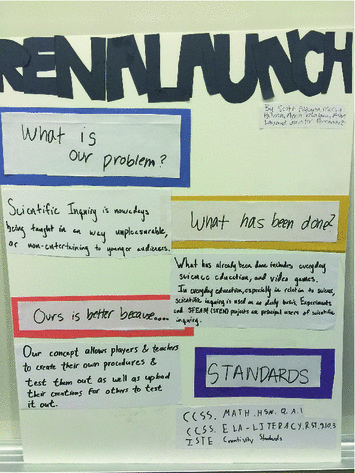 RENALAUNCH
By: Scott
What is
our problem?
Scientific Inquiry is nowadays
being taught in an way unpleasurable,
or non-entertaining to younger audiences.
What has been done?
What has already been done includes everyday
science education, and video games.
In everyday education, especially in relation to science,
scientific inquiry is used on a daily basis. Experiments
and STEAM (STEM) projects are principal users of scientific
inquiry.
Ours is better because...
Our concept allows players & teachers
to create their own procedures &
test them out as well as upload
their creations for others to test
it out.
STANDARDS
CCSS. MATH. HSN. Q. A. 1
CCSS. ELA-LITERACY. RST.
ISTE Creativity Standards